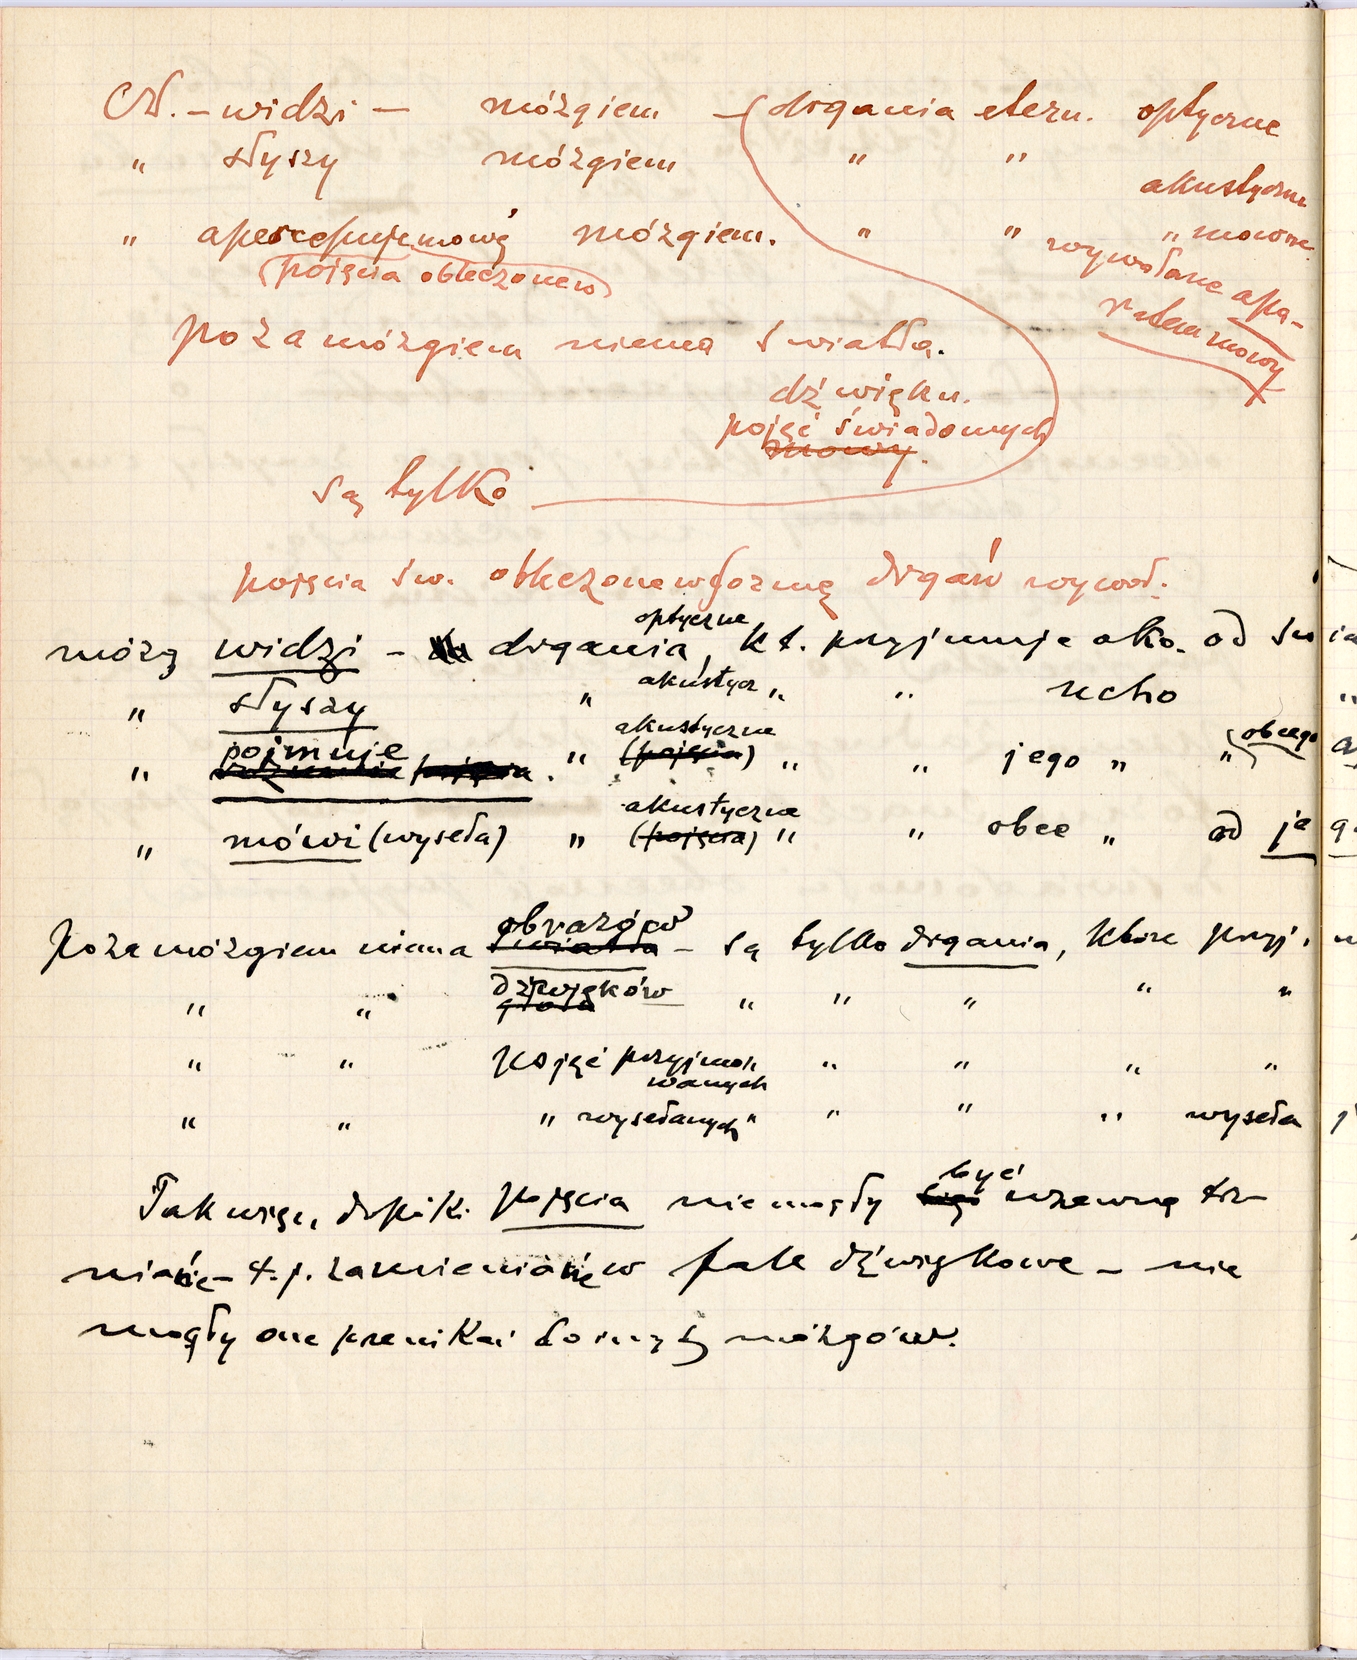 Cz. – widzi – mózgiem – (drgania eteru. optyczne
„ słyszy mózgiem „ „ akustyczne
„ apercepuje mowę mózgiem. „ „ „ mowne
(pojęcia obleczone w) wywołane apa-
ratem mowy
poza mózgiem niema światła.
dźwięku.
pojęć świadomych
mowy.
są tylko
pojęcia św. obleczone w formę drgań wywoł.
optyczne
mózg widzi – drgania, kt. przyjmuje oko. od św
„ słyszy „ akustycz „ „ ucho
pojmuje akustyczne obcego
„ „ (pojęcia) „ „ jego „ „
akustyczne
„ mówi (wyseła) „ (pojęcia) „ „ obce „ od je
obrazów
Poza mózgiem niema światła – są tylko drgania, które przyj.
dźwięków
„ „ „ „ „ „ „
„ „ pojęć przyjmo- „ „ „ „
wanych
„ „ „ wysełanych „ „ „ „ wyseła
być
Tak więc, dopóki pojęcia nie mogły wzewnę trz
niane – t.j. zamieniane w fale dźwiękowe – nie
mogły one przenikać do mózgów.